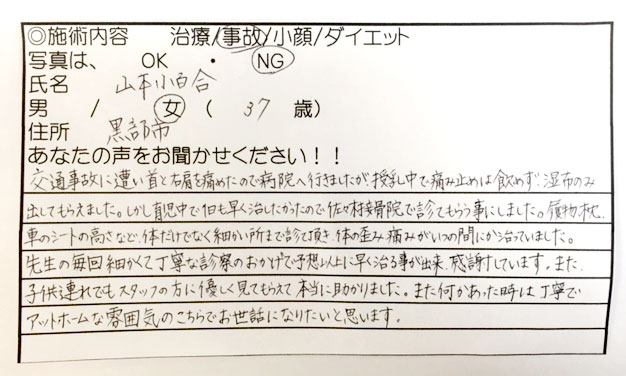 ◎施術内容 治療/事故/小顔/ダイエット
写真は、 OK ・ NG
氏名 山本小百合
男 / 女 ( 37 歳)
住所 黒部市
あなたの声をお聞かせください！！
交通事故に遭い首と右肩を痛めたので病院へ行きましたが、授乳中で痛み止めは飲めず、湿布のみ
出してもらえました。しかし育児中で1日も早く治したかったので佐々村接骨院で診てもらう事にしました。履物、枕、
車のシートの高さなど、体だけでなく細かい所まで診て頂き、体の歪み痛みがいつの間にか治っていました。
先生の毎回細かくて丁寧な診察のおかげで予想以上に早く治る事が出来、感謝しています。また、
子供連れでもスタッフの方に優しく見てもらえて本当に助かりました。また何かあった時は丁寧で
アットホームな雰囲気のこちらでお世話になりたいと思います。